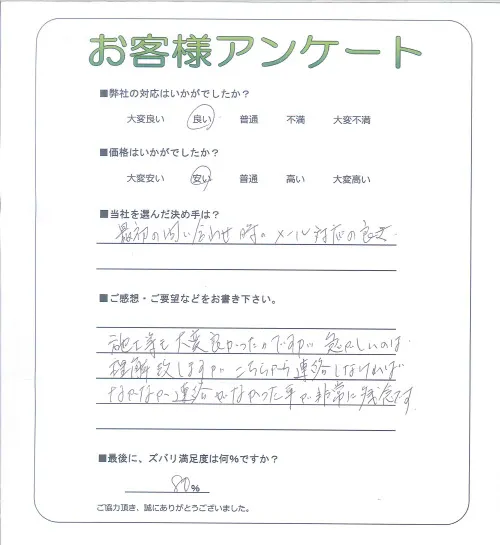 お客様アンケート
■弊社の対応はいかがでしたか？
大変良い 良い 普通 不満 大変不満
■価格はいかがでしたか？
大変安い 安い 普通 高い 大変高い
■当社を選んだ決め手は？
最初の問い合わせ時のメール対応の良さ.
■ご感想・ご要望などをお書き下さい。
施工等も大変良かったのですが、忙しいのは
理解致しますが、こちらから連絡しなければ
なかなか連絡がなかった事が非常に残念です.
■最後に、ズバリ満足度は何%ですか？
80%
ご協力頂き、誠にありがとうございました。